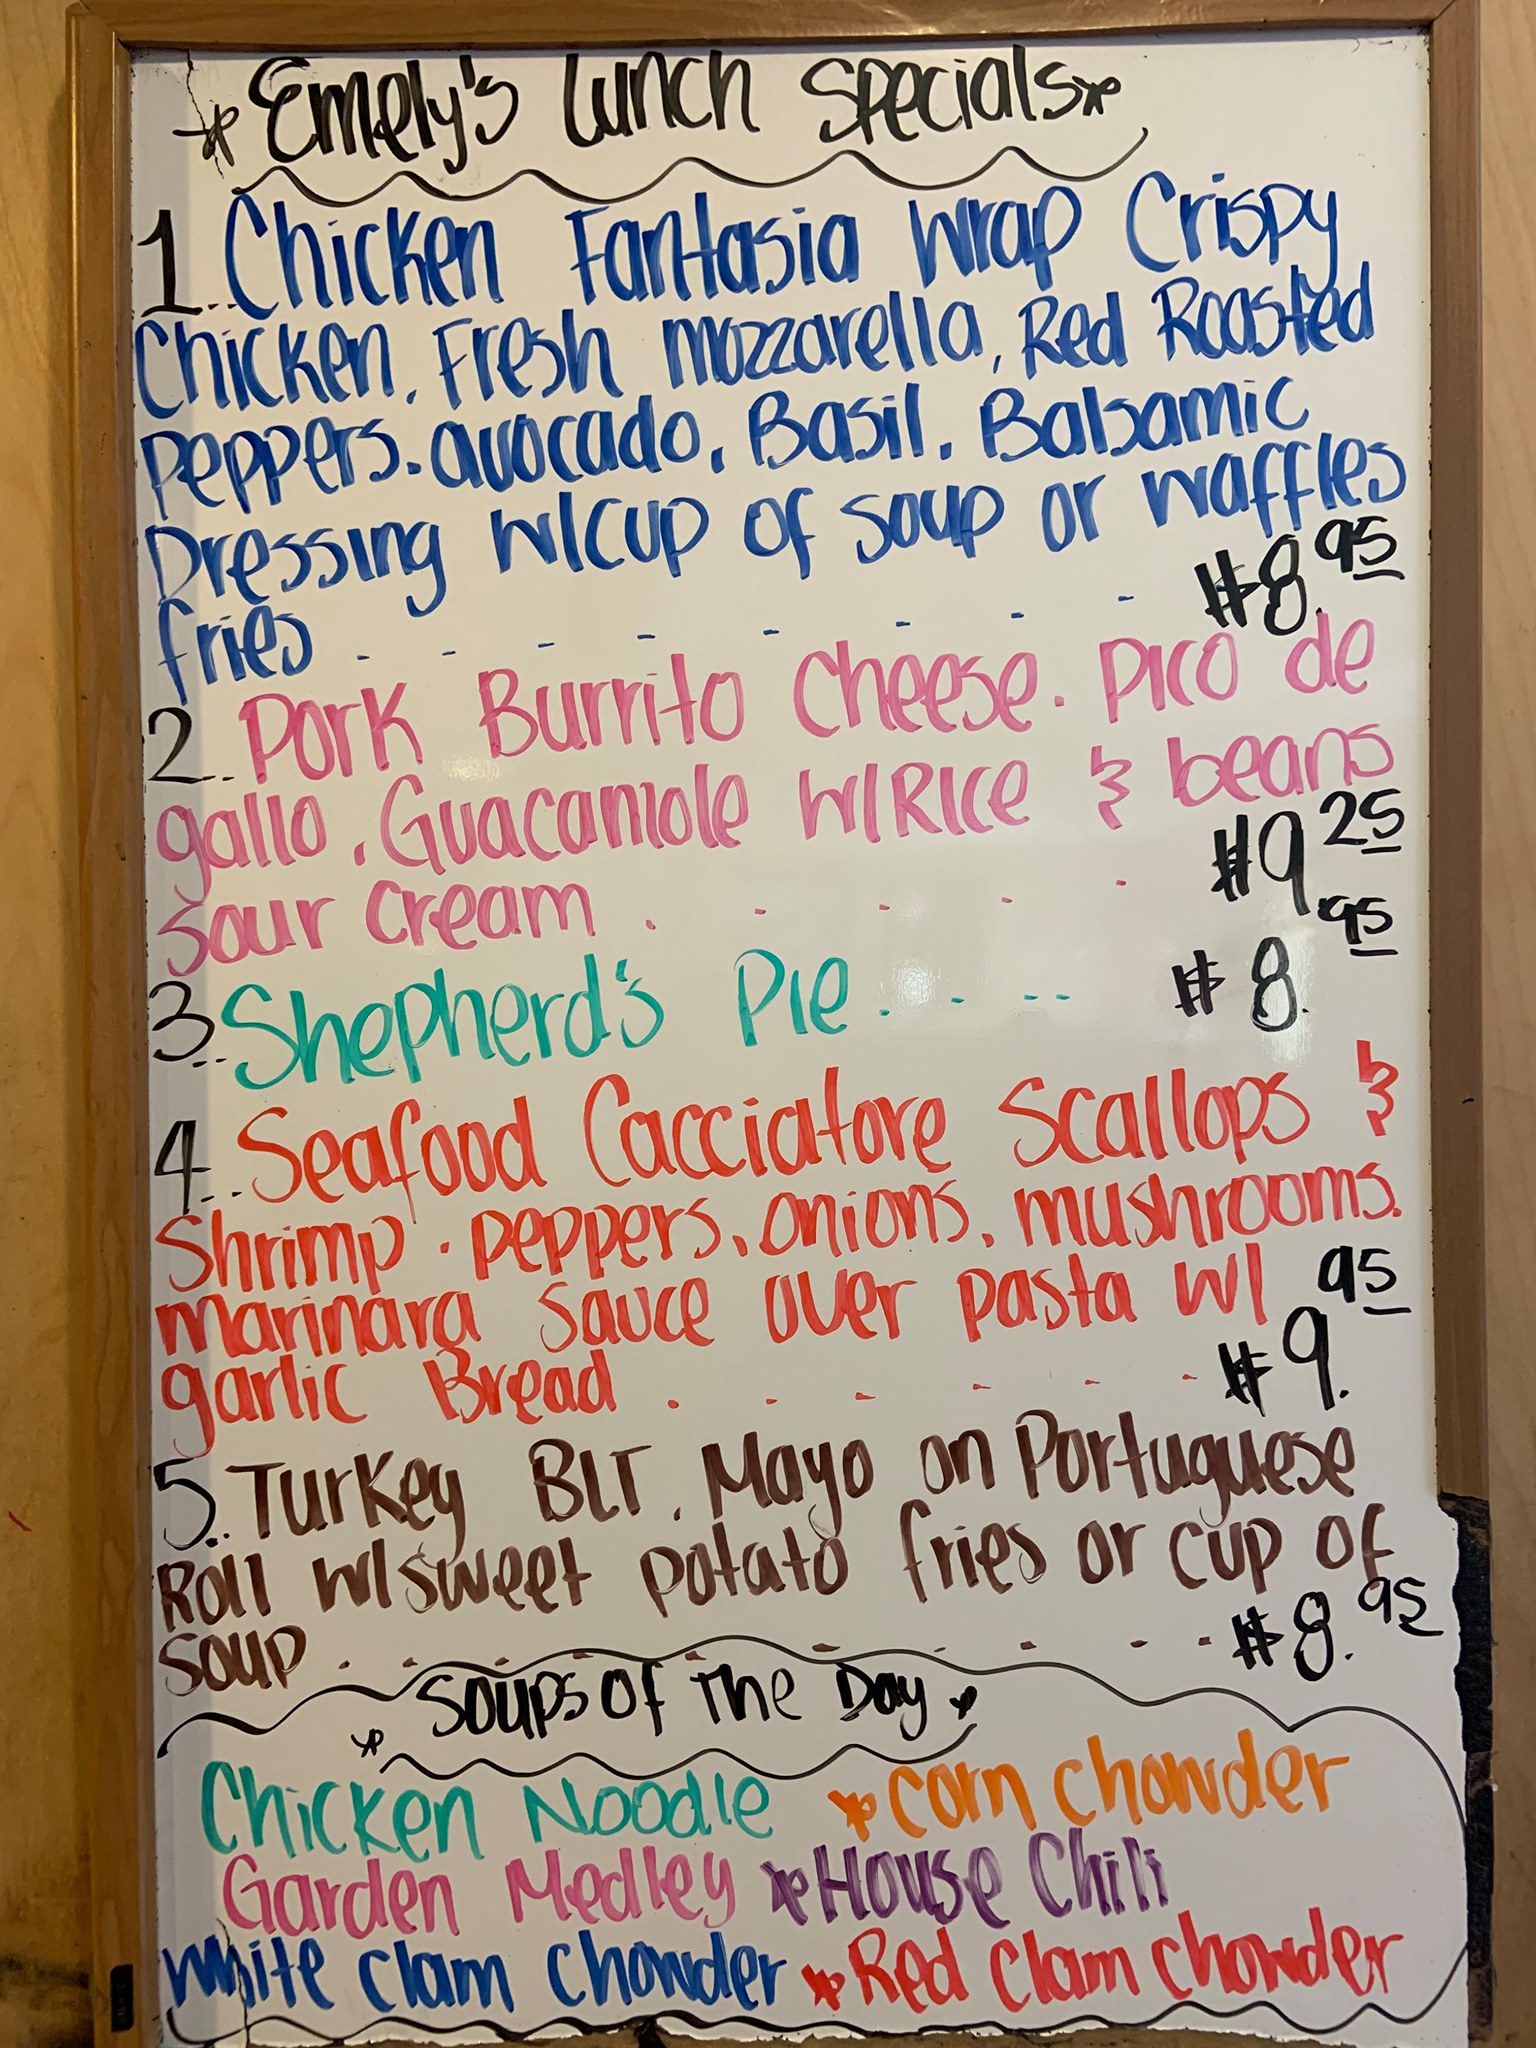 * Emely's Lunch Specials *
1.. Chicken Fantasia Wrap Crispy
Chicken, Fresh mozzarella, Red Roasted
peppers. avocado, Basil, Balsamic
Dressing w/cup of soup or waffles
fries . - - - - - - $8.95
2.. Pork Burrito Cheese. pico de
gallo, Guacamole w/Rice & beans
sour cream . - - - - $9 25
3.. Shepherd's Pie . - -- $8.95
4... Seafood Cacciatore Scallops &
Shrimp. peppers, onions, mushrooms.
marinara sauce over pasta w/
garlic Bread . - - - - - $9.95
5.. Turkey BLT, Mayo on Portuguese
Roll w/sweet potato fries or cup of
soup . - - - - - - - - $8.95
* Soups of The Day *
Chicken Noodle * corn chowder
Garden Medley * House Chili
White clam chowder * Red clam chowder